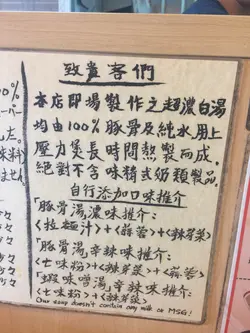 致貴客們
00%
ーパー
本店即場製作之超濃白湯
均由100%豚骨及純水用上
壓力煲長時間熬製而成,
絕對不含味精或奶類製品。
自行添加口味推介
「豚骨湯濃味推介:
〈拉麵汁〉+〈蒜蓉〉+〈辣芽菜〉
「豚骨湯辛辣味推介:
〈七味粉〉+〈辣芽菜〉+〈蒜蓉〉
「蝦味噌湯辛辣味推介:
〈七味粉〉+〈辣芽菜〉
Our soup doesn't contain any milk or MSG!